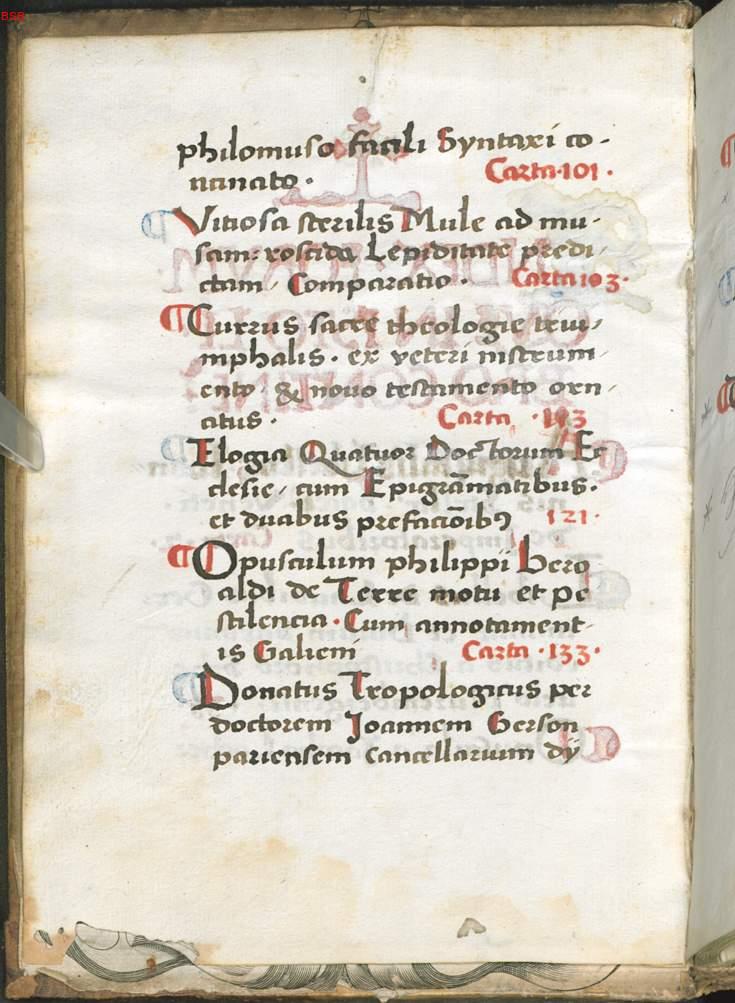 BSB
philomuso facili Syntaxi co-
ncinato.
Carta.101.
¶ Vitiosa sterilis Mule ad mu-
scam: roscida Lepiditate predi-
ctam, Comparatio.
Carta 103.
¶ Currus sacre theologie triu-
mphalis. ex veteri instrum-
ento, & novo testamento orn-
atus.
Carta .113
¶ Elogia Quatuor Doctorum Ec
clesie, cum Epigrāmatibus.
et duabus prefaciōibꝫ 121.
¶ Opusculum philippi Bero
aldi de Terre motu et pe
stilencia. Cum annotament-
is Galieni
Carta .133.
¶ Donatus Tropologicus per
doctorem Joannem Gerson
pariensem Cancellarium dÿ